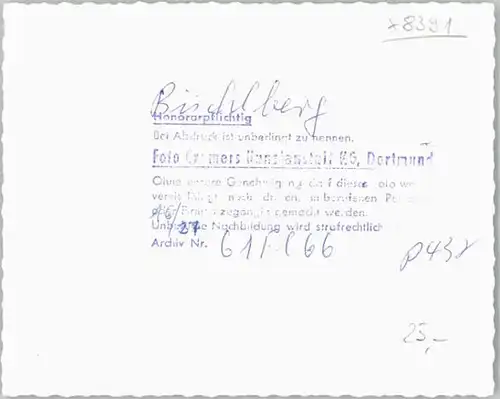 *8391
Büchlberg
Honorarpflichtig
Bei Abdruck ist unbedingt zu nennen.
Foto Cramers Kunstanstalt KG, Dortmund
Ohne unsere Genehmigung darf dieses Foto
vervielfältigt noch dritten unberufenen
zugänglich gemacht werden.
27
Unbefugte Nachbildung wird strafrechtlich
Archiv Nr. 611/C66
P438
25,-